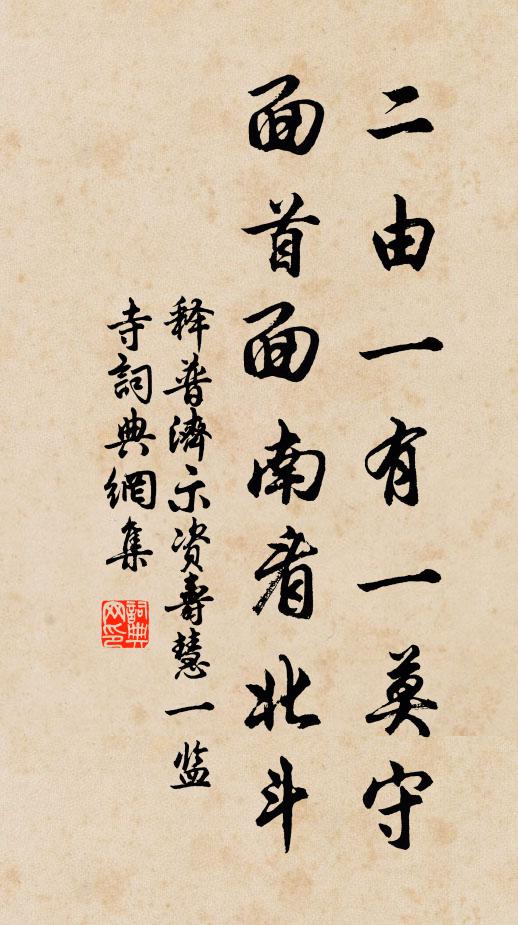 二由一有一莫守
面首面南看北斗
释普濟示资壽慧一监
寺詞典網集
詞典
网印